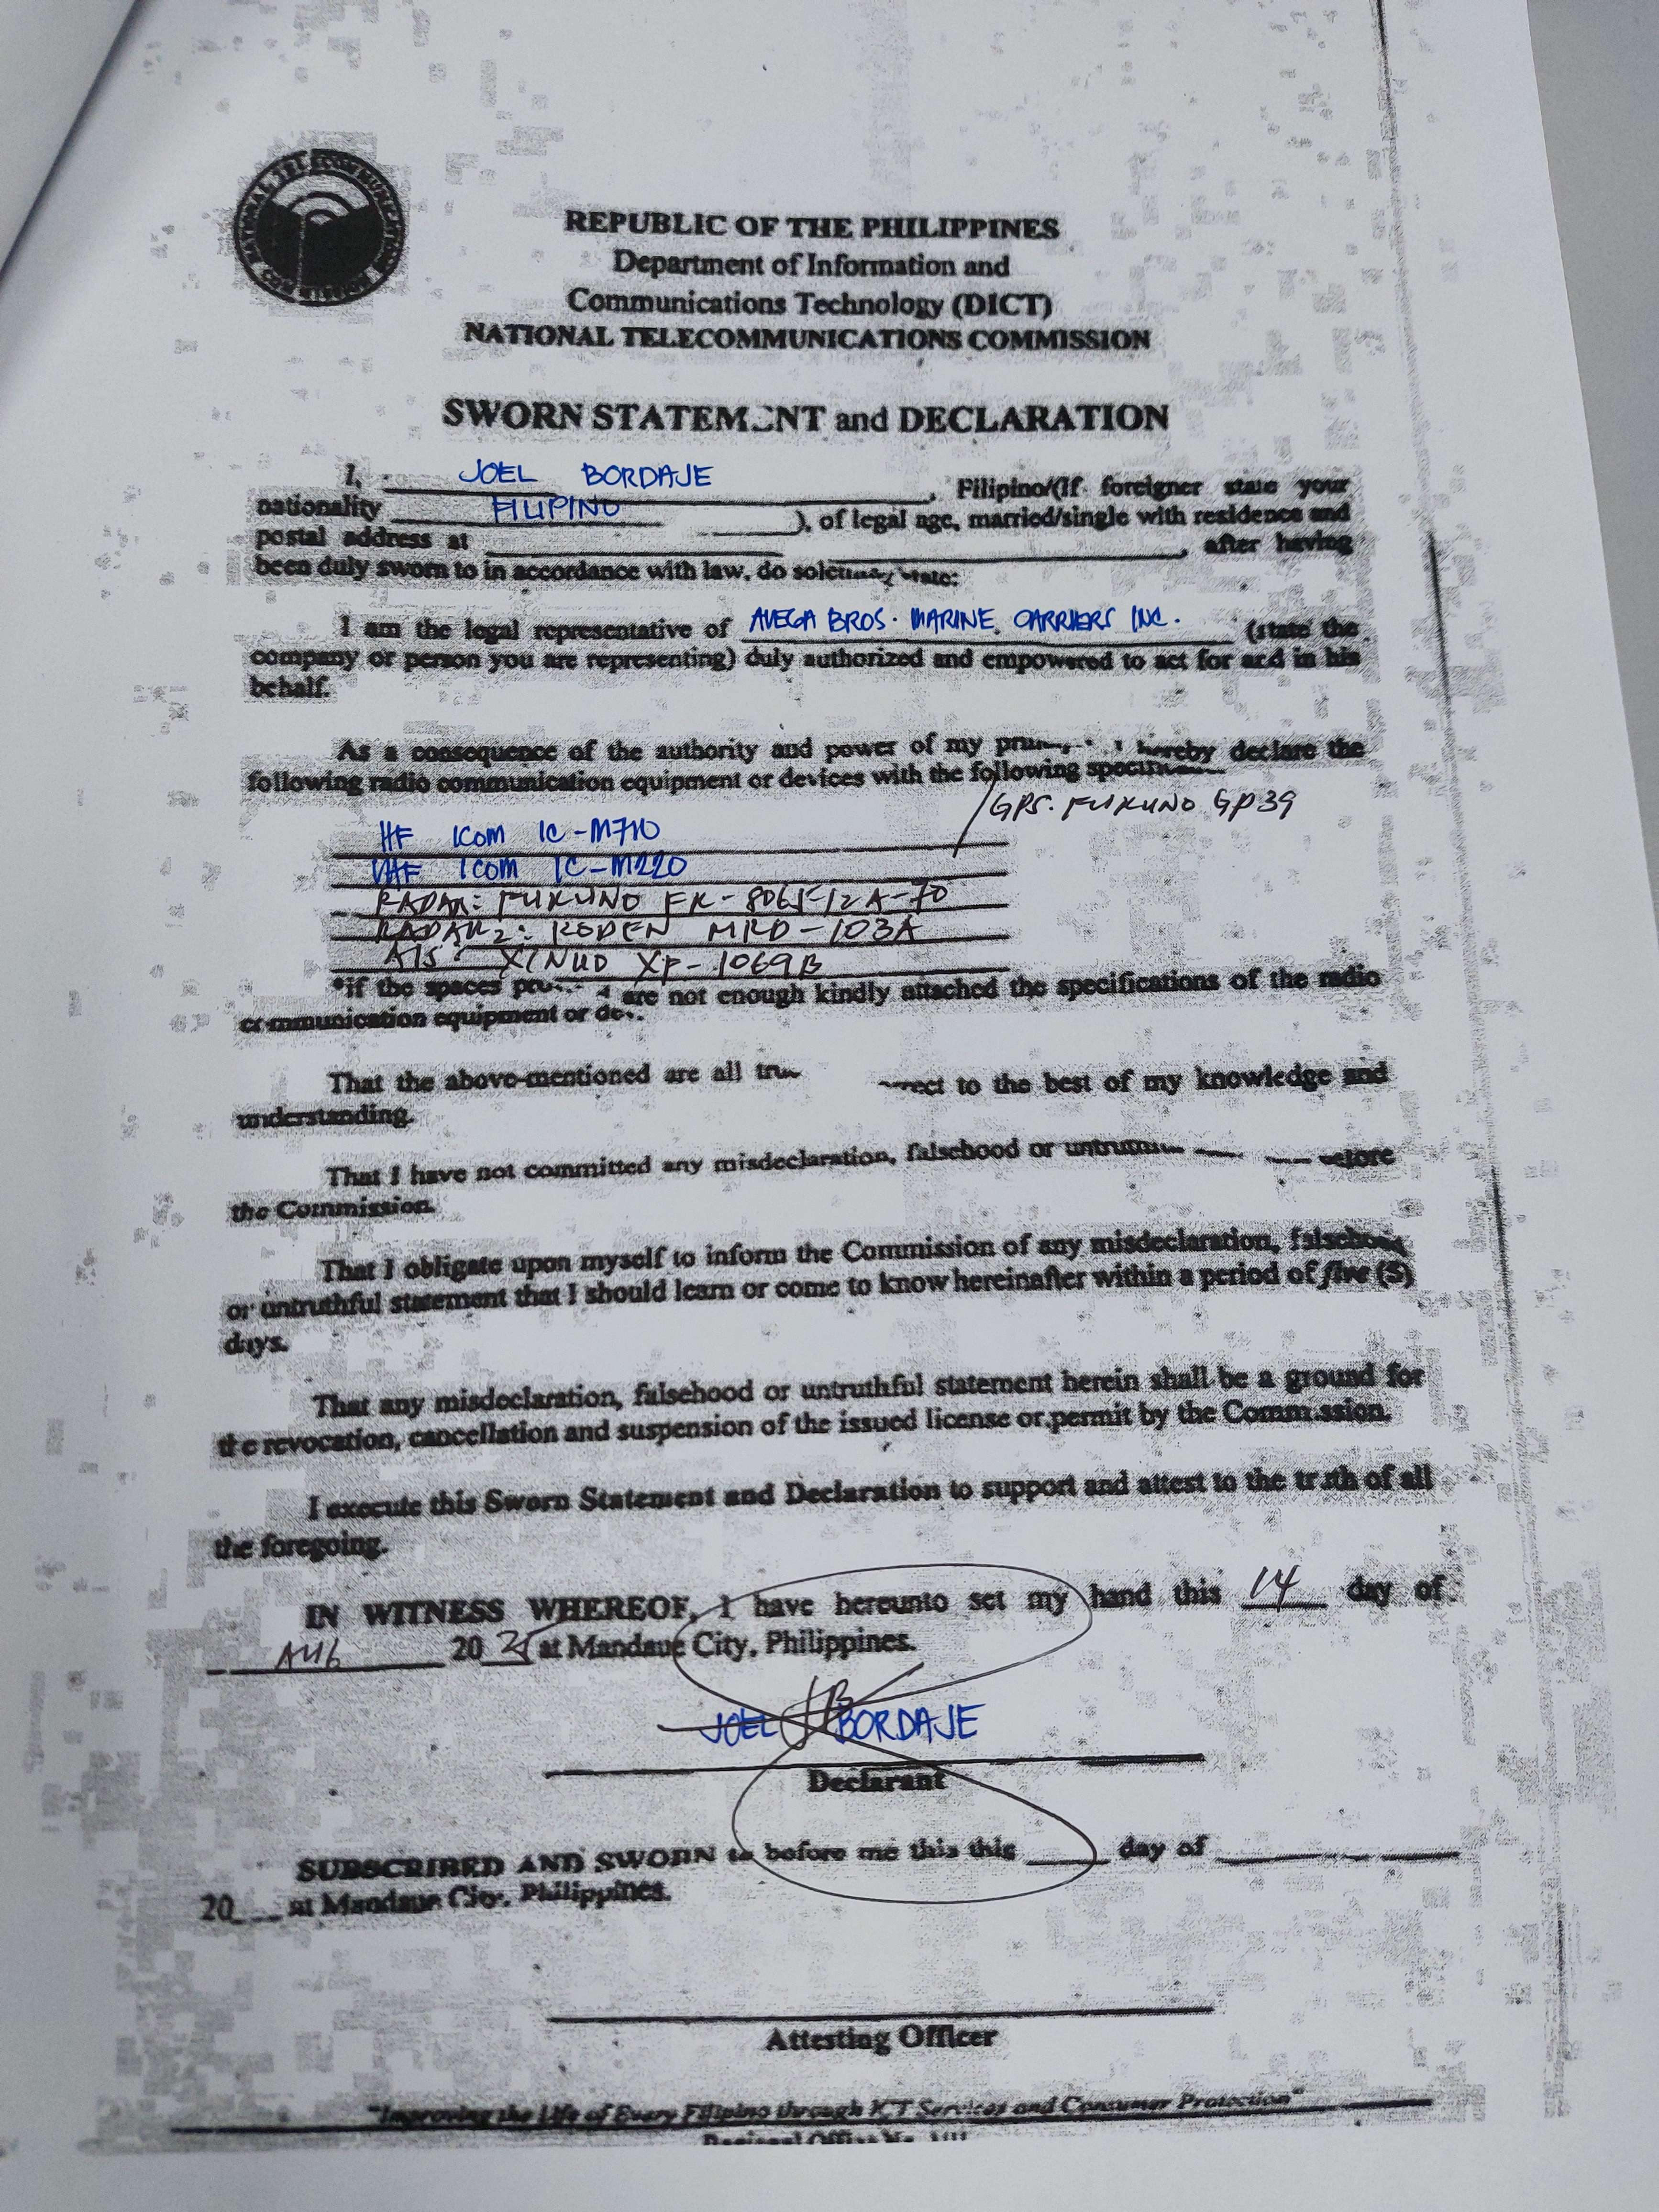 NATIONAL TELECOMMUNICATIONS COMMISSION
REPUBLIC OF THE PHILIPPINES
Department of Information and
Communications Technology (DICT)
NATIONAL TELECOMMUNICATIONS COMMISSION
SWORN STATEMENT and DECLARATION
I, JOEL BORDAJE, Filipino/(If foreigner state your
nationality FILIPINO ), of legal age, married/single with residence and
postal address at , after having
been duly sworn to in accordance with law, do state:
I am the legal representative of AVEGA BROS. MARINE CARRIERS INC. (state the
company or person you are representing) duly authorized and empowered to act for and in his
behalf.
As a consequence of the authority and power of my I hereby declare the
following radio communication equipment or devices with the following
GPS: FURUNO GP39
HF ICOM IC-M710
VHF ICOM IC-M220
RADAR: FURUNO FR-8065-12A-70
RADAR 2: KODEN MRD-103A
AIS: XINUO XF-1069B
*if the spaces are not enough kindly attached the specifications of the radio
communication equipment or
That the above-mentioned are all to the best of my knowledge and
understanding.
That I have not committed any misdeclaration, falsehood or before
the Commission.
That I obligate upon myself to inform the Commission of any misdeclaration, falsehood
or untruthful statement that I should learn or come to know hereinafter within a period of five (5)
days.
That any misdeclaration, falsehood or untruthful statement herein shall be a ground for
the revocation, cancellation and suspension of the issued license or permit by the Commission.
I execute this Sworn Statement and Declaration to support and attest to the truth of all
the foregoing.
IN WITNESS WHEREOF, I have hereunto set my hand this 14 day of
AUG 2025 at Mandaue City, Philippines.
JOEL BORDAJE
Declarant
SUBSCRIBED AND SWORN to before me this this day of
20 at Mandaue City, Philippines.
Attesting Officer
"Improving the Life of Every Filipino through ICT Services and Consumer Protection"
Regional Office No.